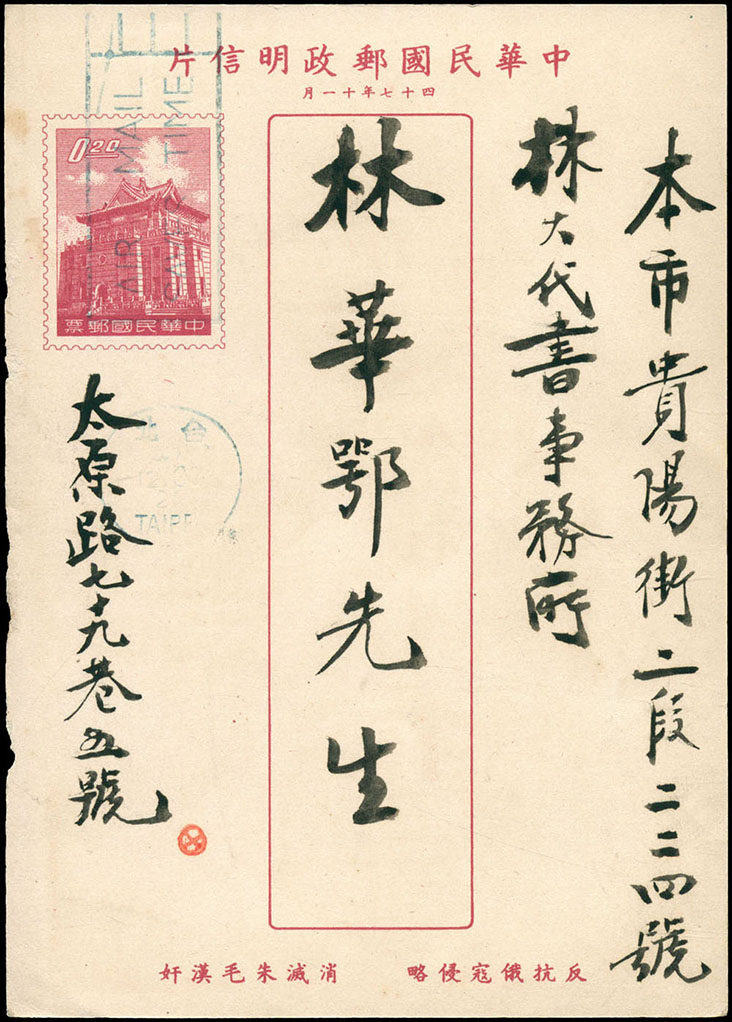 中華民國郵政明信片
四十七年十一月
本市貴陽街二段二二四號
林大代書事務所
林華鄂先生
0.20
中華民國郵票
太原路七十九巷五號
AIR MAIL
TIME
台北
TAIPE
反抗俄寇侵略
消滅朱毛漢奸